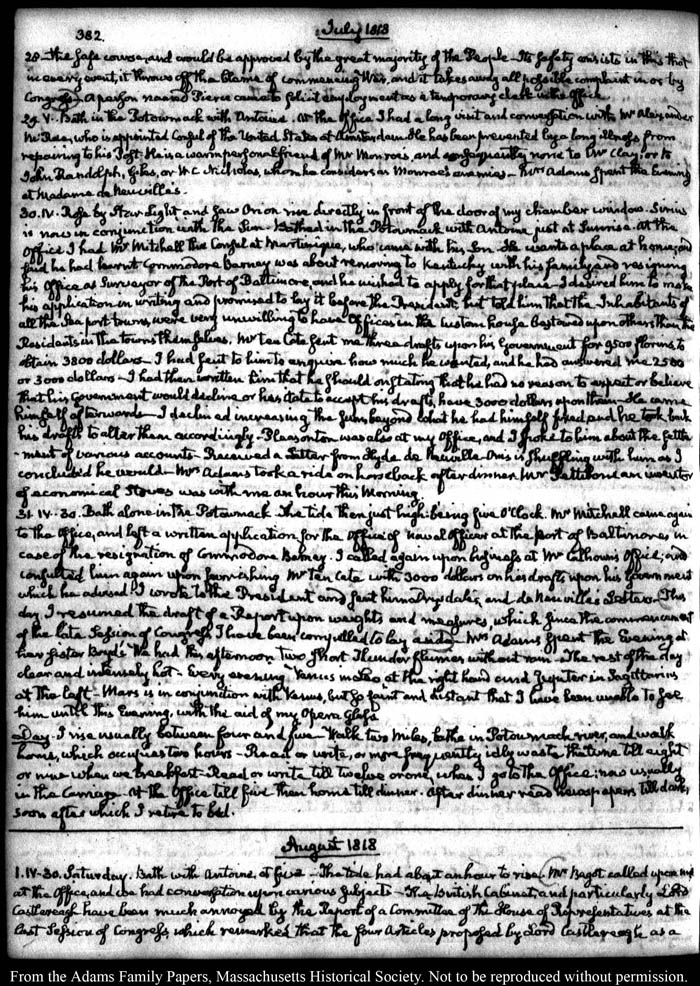 382.
July 1818
28. the safe course, and would be approved by the great majority of the People. Its safety consists in this that
in every event, it throws off the blame of commencing War, and it takes away all possible complaint in or by
Congress. A person named Pierce came to solicit employment as a temporary clerk in the Office.
29. V. Bath in the Potowmack with Antoine. At the Office I had a long visit and conversation with Mr Alexander
McRae, who is appointed Consul of the United States at Amsterdam. He has been prevented by a long illness from
repairing to his Post. He is a warm personal friend of Mr Monroe's, and consequently none to Mr Clay, or to
John Randolph, Giles, or W. C. Nicholas, whom he considers as Monroe's enemies. Mrs Adams spent the Evening
at Madame de Neuville's.
30. IV. Rose by Star Light and saw Orion rise directly in front of the door of my chamber window. Sirius
is now in conjunction with the Sun. Bathed in the Potowmack with Antoine just at Sunrise. At the
Office I had Mr Mitchell the Consul at Martinique, who came with his Son. He wants a place at home; and
said he had learnt Commodore Barney was about removing to Kentucky with his family and resigning
his Office as Surveyor of the Port of Baltimore, and he wished to apply for that place. I desired him to make
his application in writing and promised to lay it before the President; but told him that the Inhabitants of
all the Sea port towns, were very unwilling to have Offices in the custom house bestowed upon others than the
Residents in the towns themselves. Mr ten Cate sent me three drafts upon his Government for 9500 florins to
obtain 3800 dollars. I had sent to him to enquire how much he wanted, and he had answered me 2500
or 3000 dollars. I had then written him that he should on stating that he had no reason to expect or believe
that his Government would decline or hesitate to accept his drafts, have 3000 dollars upon them. He came
himself afterwards. I declined increasing the sum beyond what he had himself fixed and he took back
his drafts to alter them accordingly. Pleasonton was also at my Office, and I spoke to him about the settle
-ment of various accounts. Received a Letter from Hyde de Neuville. Onis is shuffling with him as I
concluded he would. Mrs Adams took a ride on horseback after dinner. Mr Pettibone an inventor
of economical Stoves was with me an hour this Morning.
31. IV. 30. Bath alone in the Potowmack. The tide then just high being five O'Clock. Mr Mitchell came again
to the Office, and left a written application for the Office of Naval Officer at the port of Baltimore in
case of the resignation of Commodore Barney. I called again upon business at Mr Calhoun's Office; and
consulted him again upon furnishing Mr Ten Cate with 3000 dollars on his drafts upon his Government
which he advised. I wrote to the President and sent him Drysdale's, and de Neuville's Letters. This
day, I resumed the draft of a Report upon weights and measures, which since the commencement
of the late Session of Congress I have been compelled to lay aside. Mrs Adams spent the Evening at
her Sister Boyd's. We had this afternoon two short Thunder flurries without rain. The rest of the day
clear and intensely hot. Every evening Venus in Leo at the right hand and Jupiter in Sagittarius
at the left. Mars is in conjunction with Venus, but so faint and distant that I have been unable to see
him until this Evening, with the aid of my Opera Glass.
Day. I rise usually between four and five. Walk two miles, bathe in Potowmack river, and walk
home, which occupies two hours. Read or write, or more frequently idly waste the time till eight
or nine when we breakfast. Read or write till twelve or one, when I go to the Office; now usually
in the Carriage. At the Office till five then home till dinner. After dinner read newspapers till dark;
soon after which I retire to bed.
August 1818
1. IV-30. Saturday. Bath with Antoine, at five. The tide had about an hour to rise. Mr Bagot called upon me
at the Office, and we had conversation upon various subjects. The British Cabinet, and particularly Lord
Castlereagh have been much annoyed by the Report of a Committee of the House of Representatives at the
last Session of Congress, which remarked that the four Articles proposed by Lord Castlereagh as a
From the Adams Family Papers, Massachusetts Historical Society. Not to be reproduced without permission.